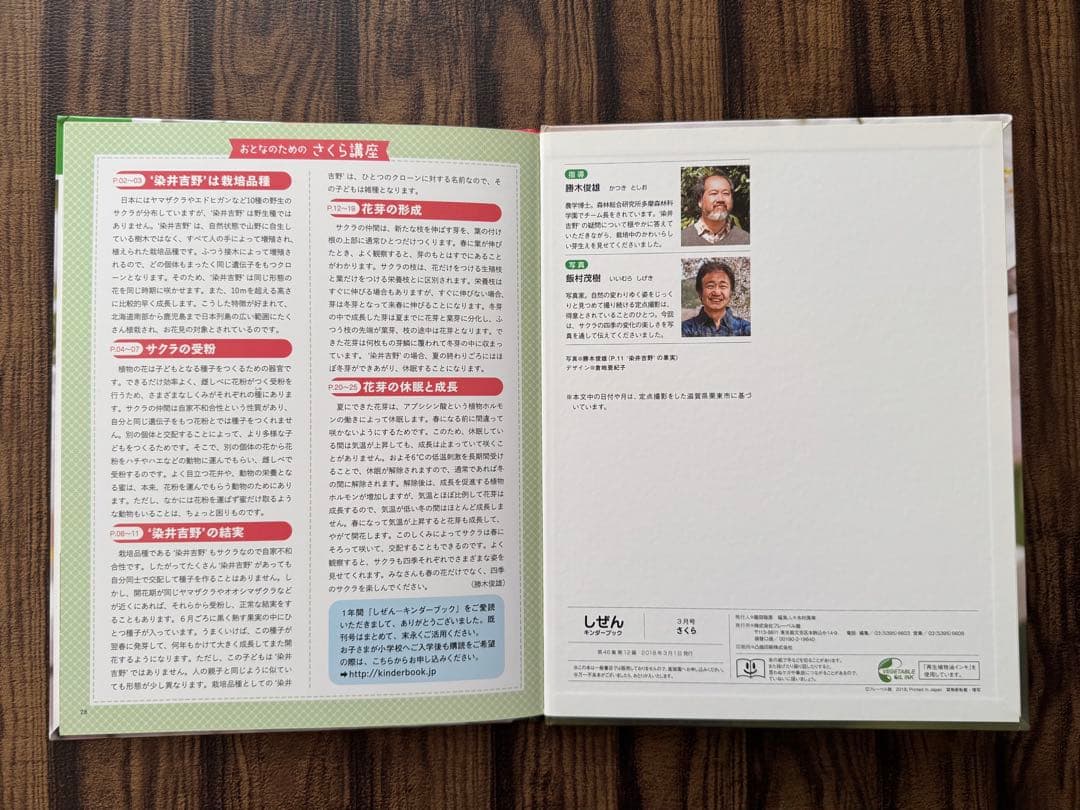 おとなのための さくら講座
P.02〜03 '染井吉野'は栽培品種
日本にはヤマザクラやエドヒガンなど10種の野生の
サクラが分布していますが、'染井吉野'は野生種では
ありません。'染井吉野'は、自然状態で山野に自生し
ている樹木ではなく、すべて人の手によって増殖され、
植えられた栽培品種です。ふつう接木によって増殖さ
れるので、どの個体もまったく同じ遺伝子をもつクロ
ーンとなります。そのため、'染井吉野'は同じ形態の
花を同じ時期に咲かせます。また、10mを超える高さ
に比較的早く成長します。こうした特徴が好まれて、
北海道南部から鹿児島まで日本列島の広い範囲にたく
さん植栽され、お花見の対象とされているのです。
P.04〜07 サクラの受粉
植物の花は子どもとなる種子をつくるための器官で
す。できるだけ効率よく、雌しべに花粉がつく受粉を
行うため、さまざまなしくみがそれぞれの種にありま
す。サクラの仲間は自家不和合性という性質があり、
自分と同じ遺伝子をもつ花粉とでは種子をつくれませ
ん。別の個体と交配することによって、より多様な子
どもをつくるためです。そこで、別の個体の花から花
粉をハチやハエなどの動物に運んでもらい、雌しべで
受粉するのです。よく目立つ花弁や、動物の栄養とな
る蜜は、本来、花粉を運んでもらう動物のためにあり
ます。ただし、なかには花粉を運ばず蜜だけ取るよう
な動物もいることは、ちょっと困りものです。
P.08〜11 '染井吉野'の結実
栽培品種である'染井吉野'もサクラなので自家不和
合性です。したがってたくさん'染井吉野'があっても
自分同士で交配して種子を作ることはありません。し
かし、開花期が同じヤマザクラやオオシマザクラなど
が近くにあれば、それらから受粉し、正常な結実をす
ることもあります。6月ごろに黒く熟す果実の中にひ
とつ種子が入っています。うまくいけば、この種子が
翌春に発芽して、何年もかけて大きく成長してまた開
花するようになります。ただし、この子どもは'染井
吉野'ではありません。人の親子と同じように似てい
ても形態が少し異なります。栽培品種としての'染井
28
吉野'は、ひとつのクローンに対する名前なので、そ
の子どもは雑種となります。
P.12〜19 花芽の形成
サクラの仲間は、新たな枝を伸ばす芽を、葉の付け
根の上部に通常ひとつだけつくります。春に葉が伸び
たとき、よく観察すると、芽のもとはすでにあること
がわかります。サクラの枝は、花だけをつける生殖枝
と葉だけをつける栄養枝とに区別されます。栄養枝は
すぐに伸びる場合もありますが、すぐに伸びない場合、
芽は冬芽となって来春に伸びることになります。冬芽
の中で成長した芽は夏までに花芽と葉芽に分化し、ふ
つう枝の先端が葉芽、枝の途中は花芽となります。で
きた花芽は何枚もの芽鱗に覆われて冬芽の中に収まっ
ています。'染井吉野'の場合、夏の終わりごろにはほ
ぼ冬芽ができあがり、休眠することになります。
P.20〜25 花芽の休眠と成長
夏にできた花芽は、アブシシン酸という植物ホルモ
ンの働きによって休眠します。春になる前に間違って
咲かないようにするためです。このため、休眠してい
る間は気温が上昇しても、成長は止まっていて咲くこ
とがありません。およそ6℃の低温刺激を長期間受け
ることで、休眠が解除されますので、通常であれば冬
の間に解除されます。解除後は、成長を促進する植物
ホルモンが増加しますが、気温とほぼ比例して花芽は
成長するので、気温が低い冬の間はほとんど成長しま
せん。春になって気温が上昇すると花芽も成長して、
やがて開花します。このしくみによってサクラは春に
そろって咲いて、交配することもできるのです。よく
観察すると、サクラも四季それぞれでさまざまな姿を
見せてくれます。みなさんも春の花だけでなく、四季
のサクラを楽しんでください。
(勝木俊雄)
1年間『しぜん—キンダーブック』をご愛読
いただきまして、ありがとうございました。既
刊号はまとめて、末永くご活用ください。
お子さまが小学校へご入学後も購読をご希望
の際は、こちらからお申し込みください。
➡http://kinderbook.jp
指導
勝木俊雄 かつき としお
農学博士。森林総合研究所多摩森林科
学園でチーム長をされています。'染井
吉野'の疑問について穏やかに答えて
いただきながら、栽培中のかわいらし
い芽生えを見せてくださいました。
写真
飯村茂樹 いいむら しげき
写真家。自然の変わりゆく姿をじっく
りと見つめて撮り続ける定点撮影は、
得意とされていることのひとつ。今回
は、サクラの四季の変化の楽しさを写
真を通して伝えてくださいました。
写真◎勝木俊雄(P.11 '染井吉野'の果実)
デザイン◎倉地亜紀子
※本文中の日付や月は、定点撮影をした滋賀県栗東市に基づ
いています。
しぜん
キンダーブック
3月号
さくら
第46集第12編 2018年3月1日発行
発行人◎飯田聡彦 編集人◎木村美幸
発行所◎株式会社フレーベル館
〒113-8611 東京都文京区本駒込6-14-9
電話 編集/03(5395)6603 営業/03(5395)6608
振替口座/00190-2-19640
印刷所◎凸版印刷株式会社
VEGETABLE OIL INK
「再生植物油インキ」を
使用しています。
©フレーベル館 2018, Printed in Japan 禁無断転載・複写